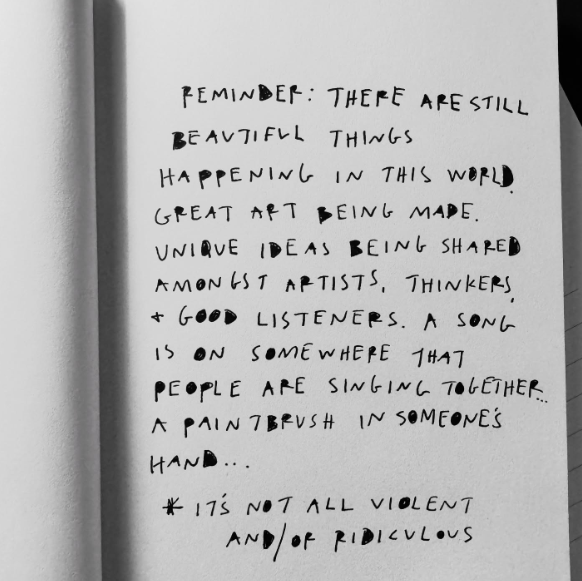 REMINDER: THERE ARE STILL
BEAUTIFUL THINGS
HAPPENING IN THIS WORLD.
GREAT ART BEING MADE.
UNIQUE IDEAS BEING SHARED
AMONGST ARTISTS, THINKERS,
+ GOOD LISTENERS. A SONG
IS ON SOMEWHERE THAT
PEOPLE ARE SINGING TOGETHER...
A PAINTBRUSH IN SOMEONE'S
HAND...
* IT'S NOT ALL VIOLENT
AND/OR RIDICULOUS